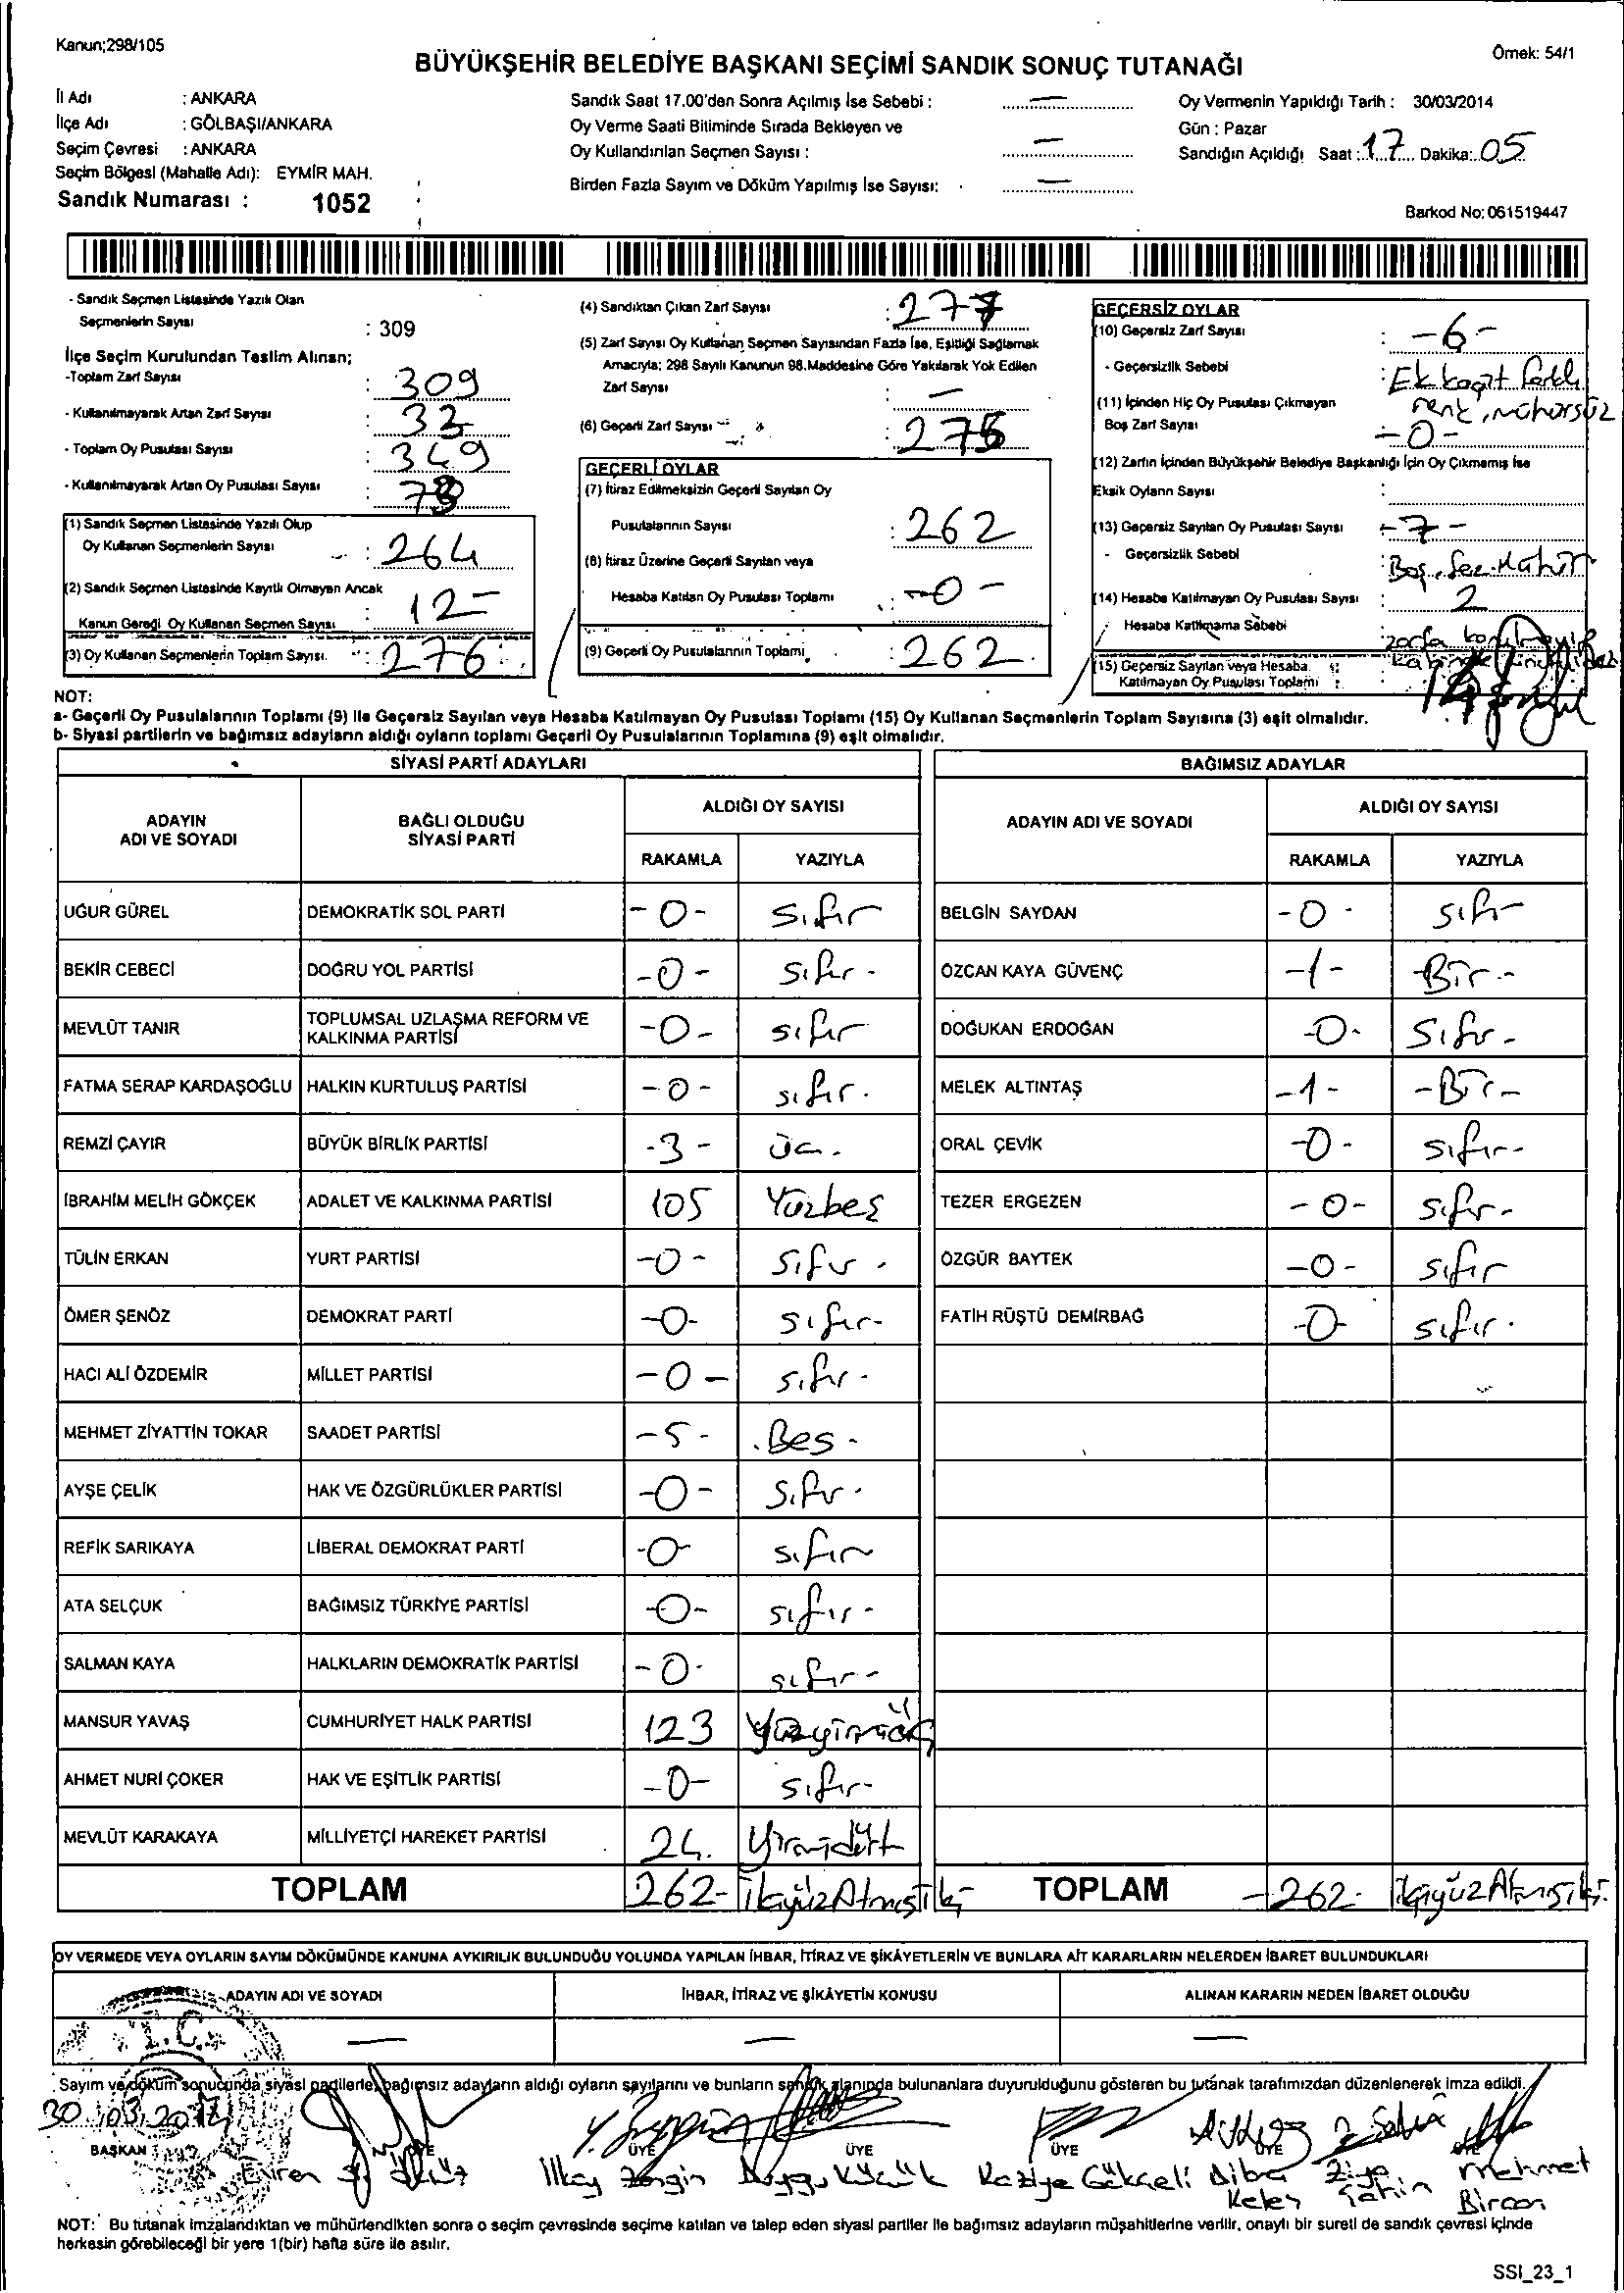 Kanun;298/105
Örnek: 54/1
BÜYÜKŞEHİR BELEDİYE BAŞKANI SEÇİMİ SANDIK SONUÇ TUTANAĞI
İl Adı : ANKARA
İlçe Adı : GÖLBAŞI/ANKARA
Seçim Çevresi : ANKARA
Seçim Bölgesi (Mahalle Adı): EYMİR MAH.
Sandık Numarası : 1052
Sandık Saat 17.00'den Sonra Açılmış İse Sebebi : —
Oy Verme Saati Bitiminde Sırada Bekleyen ve
Oy Kullandırılan Seçmen Sayısı : —
Birden Fazla Sayım ve Döküm Yapılmış İse Sayısı: —
Oy Vermenin Yapıldığı Tarih : 30/03/2014
Gün : Pazar
Sandığın Açıldığı Saat : 17 Dakika: 05
Barkod No: 061519447
- Sandık Seçmen Listesinde Yazılı Olan
Seçmenlerin Sayısı : 309
İlçe Seçim Kurulundan Teslim Alınan;
-Toplam Zarf Sayısı : 309
- Kullanılmayarak Artan Zarf Sayısı : 33
- Toplam Oy Pusulası Sayısı : 349
- Kullanılmayarak Artan Oy Pusulası Sayısı : 73
(1) Sandık Seçmen Listesinde Yazılı Olup
Oy Kullanan Seçmenlerin Sayısı : 264
(2) Sandık Seçmen Listesinde Kayıtlı Olmayan Ancak
Kanun Gereği Oy Kullanan Seçmen Sayısı : 12-
(3) Oy Kullanan Seçmenlerin Toplam Sayısı. : 276
(4) Sandıktan Çıkan Zarf Sayısı : 277
(5) Zarf Sayısı Oy Kullanan Seçmen Sayısından Fazla İse, Eşitliği Sağlamak
Amacıyla; 298 Sayılı Kanunun 98.Maddesine Göre Yakılarak Yok Edilen
Zarf Sayısı : —
(6) Geçerli Zarf Sayısı : 276
GEÇERLİ OYLAR
(7) İtiraz Edilmeksizin Geçerli Sayılan Oy
Pusulalarının Sayısı : 262
(8) İtiraz Üzerine Geçerli Sayılan veya
Hesaba Katılan Oy Pusulası Toplamı : -0-
(9) Geçerli Oy Pusulalarının Toplamı : 262
GEÇERSİZ OYLAR
(10) Geçersiz Zarf Sayısı : -6-
- Geçersizlik Sebebi : Ek kağıt farklı
renk, mühürsüz
(11) İçinden Hiç Oy Pusulası Çıkmayan
Boş Zarf Sayısı -0-
(12) Zarfın İçinden Büyükşehir Belediye Başkanlığı İçin Oy Çıkmamış İse
Eksik Oyların Sayısı :
(13) Geçersiz Sayılan Oy Pusulası Sayısı -7-
- Geçersizlik Sebebi : Boş,
(14) Hesaba Katılmayan Oy Pusulası Sayısı : 2
Hesaba Katılmama Sebebi
(15) Geçersiz Sayılan veya Hesaba
Katılmayan Oy Pusulası Toplamı :
NOT:
a- Geçerli Oy Pusulalarının Toplamı (9) ile Geçersiz Sayılan veya Hesaba Katılmayan Oy Pusulası Toplamı (15) Oy Kullanan Seçmenlerin Toplam Sayısına (3) eşit olmalıdır.
b- Siyasi partilerin ve bağımsız adayların aldığı oyların toplamı Geçerli Oy Pusulalarının Toplamına (9) eşit olmalıdır.
SİYASİ PARTİ ADAYLARI
ADAYIN ADI VE SOYADI BAĞLI OLDUĞU SİYASİ PARTİ ALDIĞI OY SAYISI RAKAMLA YAZIYLA
UĞUR GÜREL DEMOKRATİK SOL PARTİ -0- sıfır
BEKİR CEBECİ DOĞRU YOL PARTİSİ -0- sıfır-
MEVLÜT TANIR TOPLUMSAL UZLAŞMA REFORM VE KALKINMA PARTİSİ -0- sıfır
FATMA SERAP KARDAŞOĞLU HALKIN KURTULUŞ PARTİSİ -0- sıfır.
REMZİ ÇAYIR BÜYÜK BİRLİK PARTİSİ -3- üç.
İBRAHİM MELİH GÖKÇEK ADALET VE KALKINMA PARTİSİ 105 Yüzbeş
TÜLİN ERKAN YURT PARTİSİ -0- sıfır.
ÖMER ŞENÖZ DEMOKRAT PARTİ -0- sıfır-
HACI ALİ ÖZDEMİR MİLLET PARTİSİ -0- sıfır.
MEHMET ZİYATTİN TOKAR SAADET PARTİSİ -5- .Beş-
AYŞE ÇELİK HAK VE ÖZGÜRLÜKLER PARTİSİ -0- sıfır.
REFİK SARIKAYA LİBERAL DEMOKRAT PARTİ -0- sıfır
ATA SELÇUK BAĞIMSIZ TÜRKİYE PARTİSİ -0- sıfır-
SALMAN KAYA HALKLARIN DEMOKRATİK PARTİSİ -0- sıfır-
MANSUR YAVAŞ CUMHURİYET HALK PARTİSİ 123 Yüzyirmiüç
AHMET NURİ ÇOKER HAK VE EŞİTLİK PARTİSİ -0- sıfır-
MEVLÜT KARAKAYA MİLLİYETÇİ HAREKET PARTİSİ 24. Yirmidört
TOPLAM 262- İkiyüzAtmışİki
BAĞIMSIZ ADAYLAR
ADAYIN ADI VE SOYADI ALDIĞI OY SAYISI RAKAMLA YAZIYLA
BELGİN SAYDAN -0- sıfır
ÖZCAN KAYA GÜVENÇ -1- -Bir-
DOĞUKAN ERDOĞAN -0- Sıfır-
MELEK ALTINTAŞ -1- -Bir-
ORAL ÇEVİK -0- sıfır-
TEZER ERGEZEN -0- sıfır-
ÖZGÜR BAYTEK -0- sıfır
FATİH RÜŞTÜ DEMİRBAĞ -0- sıfır.
TOPLAM -262- İkiyüzAtmışiki.
OY VERMEDE VEYA OYLARIN SAYIM DÖKÜMÜNDE KANUNA AYKIRILIK BULUNDUĞU YOLUNDA YAPILAN İHBAR, İTİRAZ VE ŞİKÂYETLERİN VE BUNLARA AİT KARARLARIN NELERDEN İBARET BULUNDUKLARI
ADAYIN ADI VE SOYADI İHBAR, İTİRAZ VE ŞİKÂYETİN KONUSU ALINAN KARARIN NEDEN İBARET OLDUĞU
— — —
T.C.
Sayım ve döküm sonucunda siyasi partilerle, bağımsız adayların aldığı oyların sayılarını ve bunların sandık alanında bulunanlara duyurulduğunu gösteren bu tutanak tarafımızdan düzenlenerek imza edildi.
30.03.2014
BAŞKAN ÜYE ÜYE ÜYE ÜYE ÜYE ÜYE
Evren İlkay Zengin Duygu Küçük Raziye Gökçeli Dilber Keleş Ziya Şahin Mehmet Bircan
NOT: Bu tutanak imzalandıktan ve mühürlendikten sonra o seçim çevresinde seçime katılan ve talep eden siyasi partiler ile bağımsız adayların müşahitlerine verilir, onaylı bir sureti de sandık çevresi içinde
herkesin görebileceği bir yere 1(bir) hafta süre ile asılır.
SSI_23_1